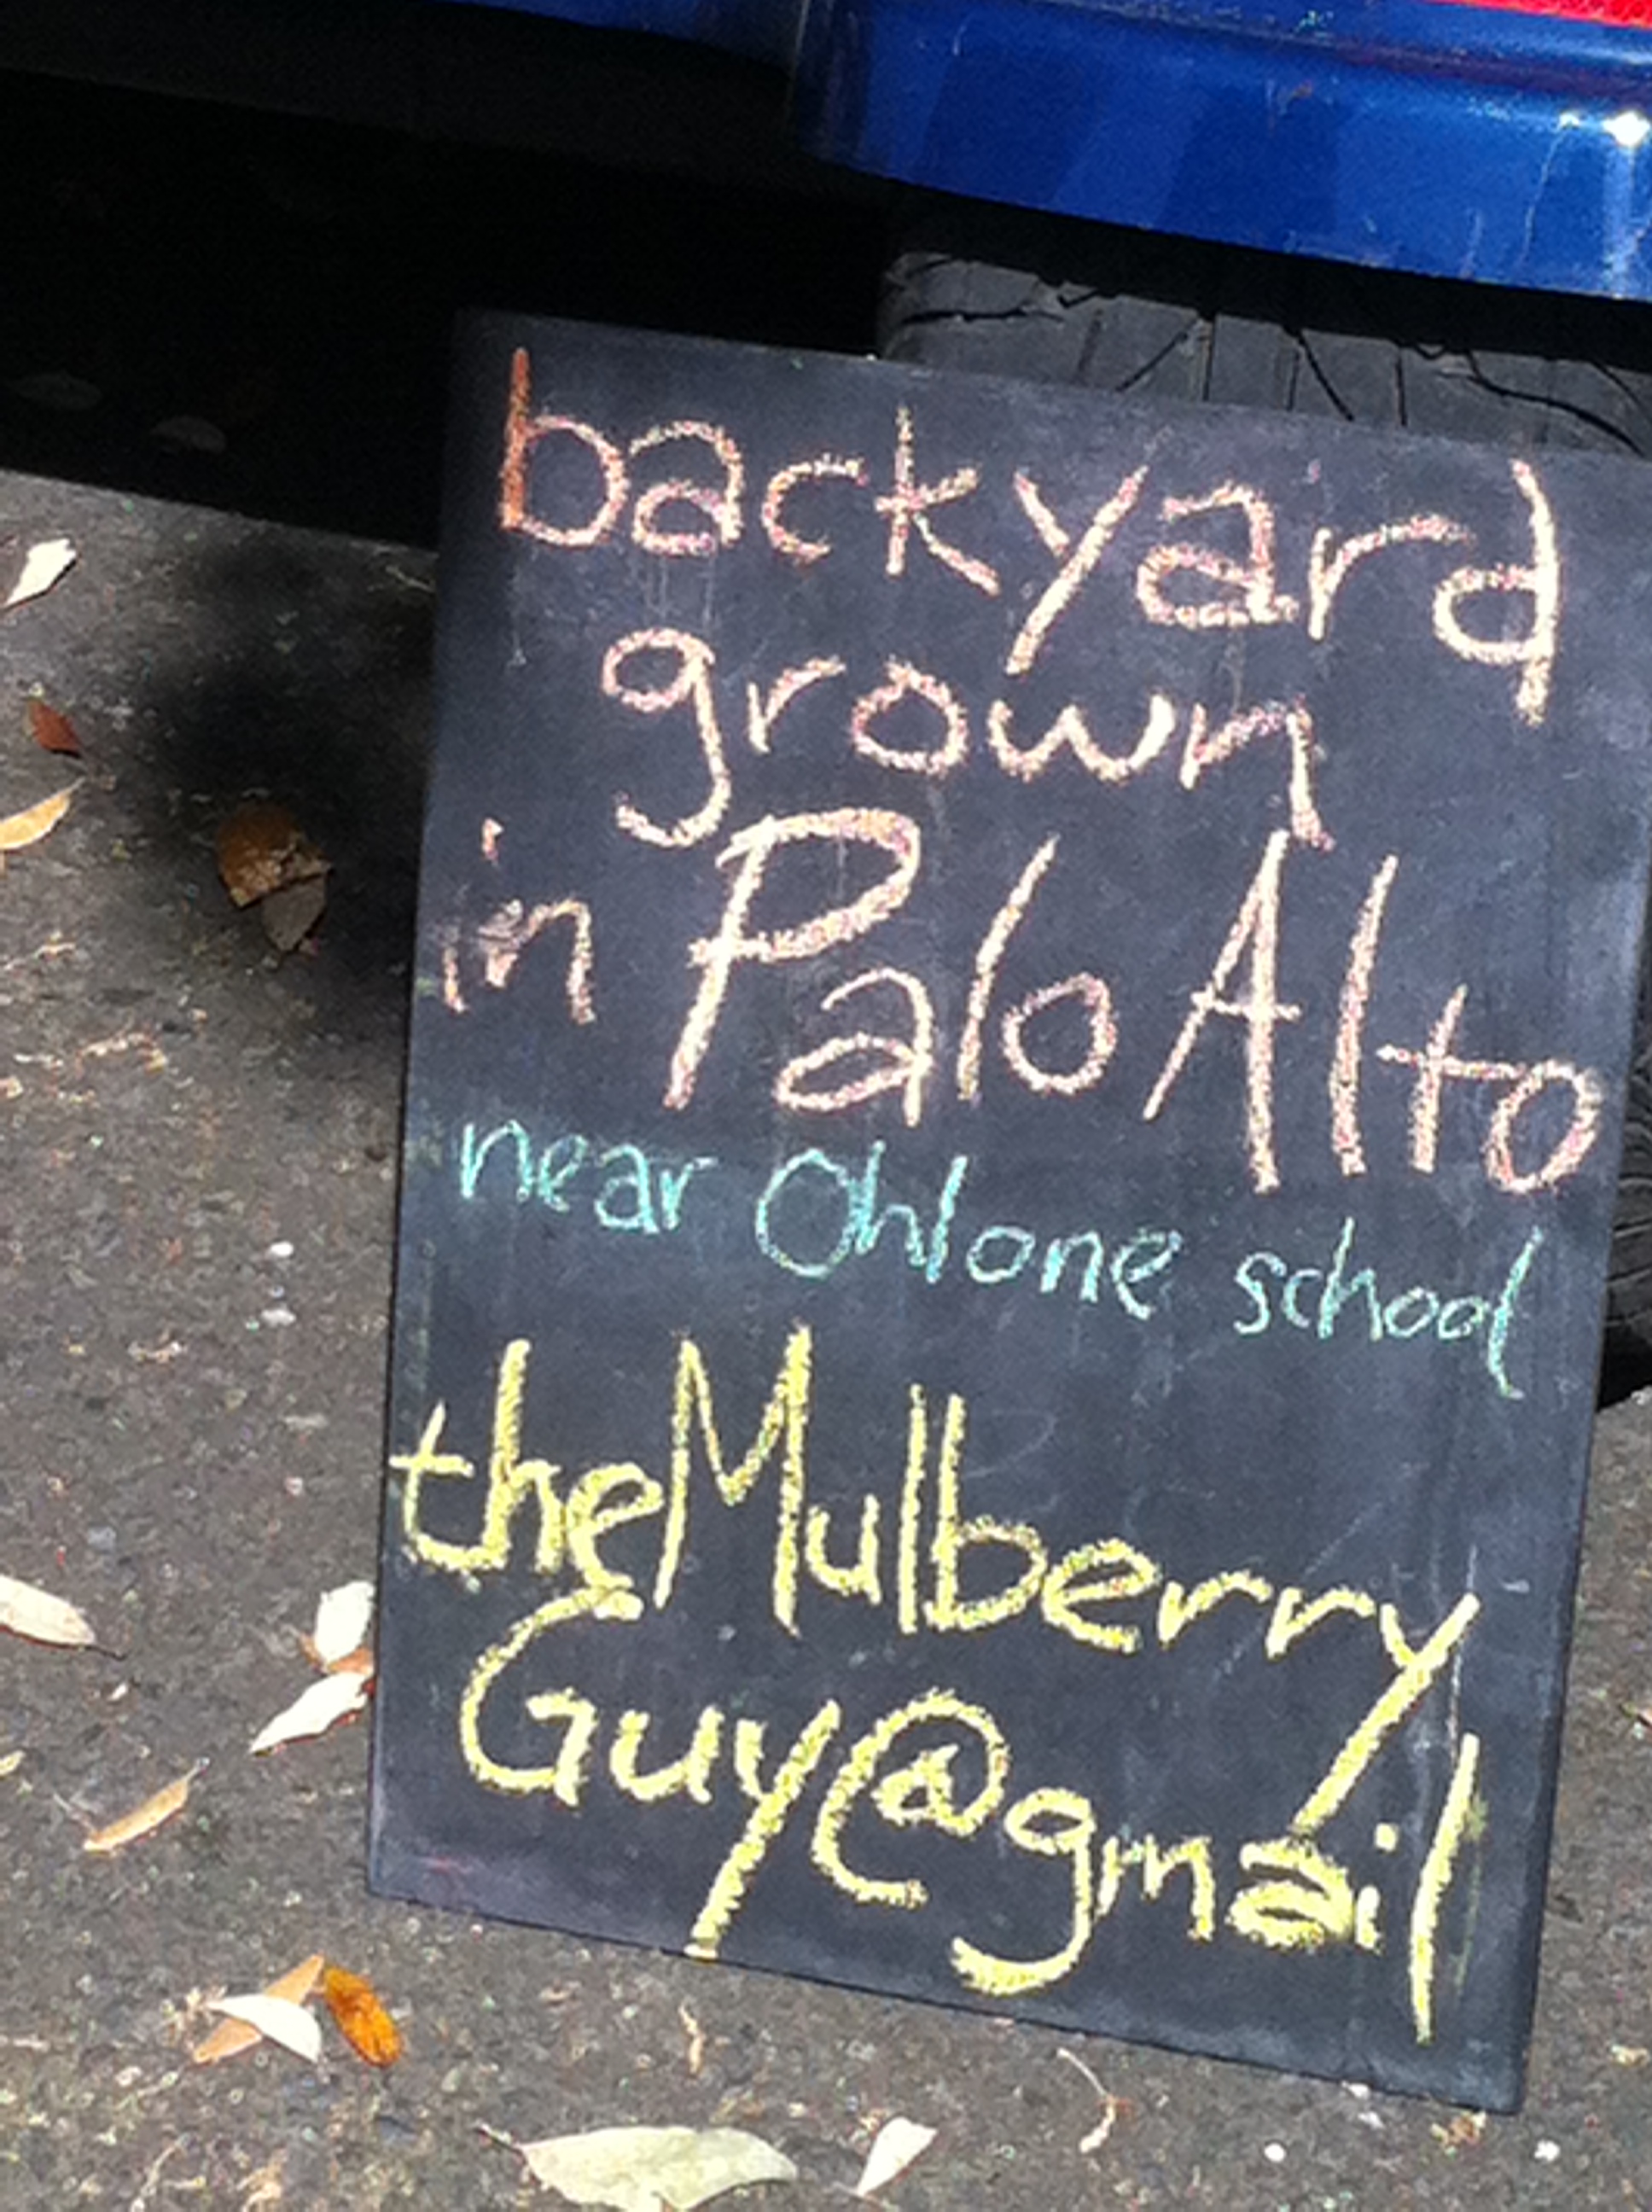 backyard
grown
in Palo Alto
near Ohlone school
theMulberry
Guy@gmail